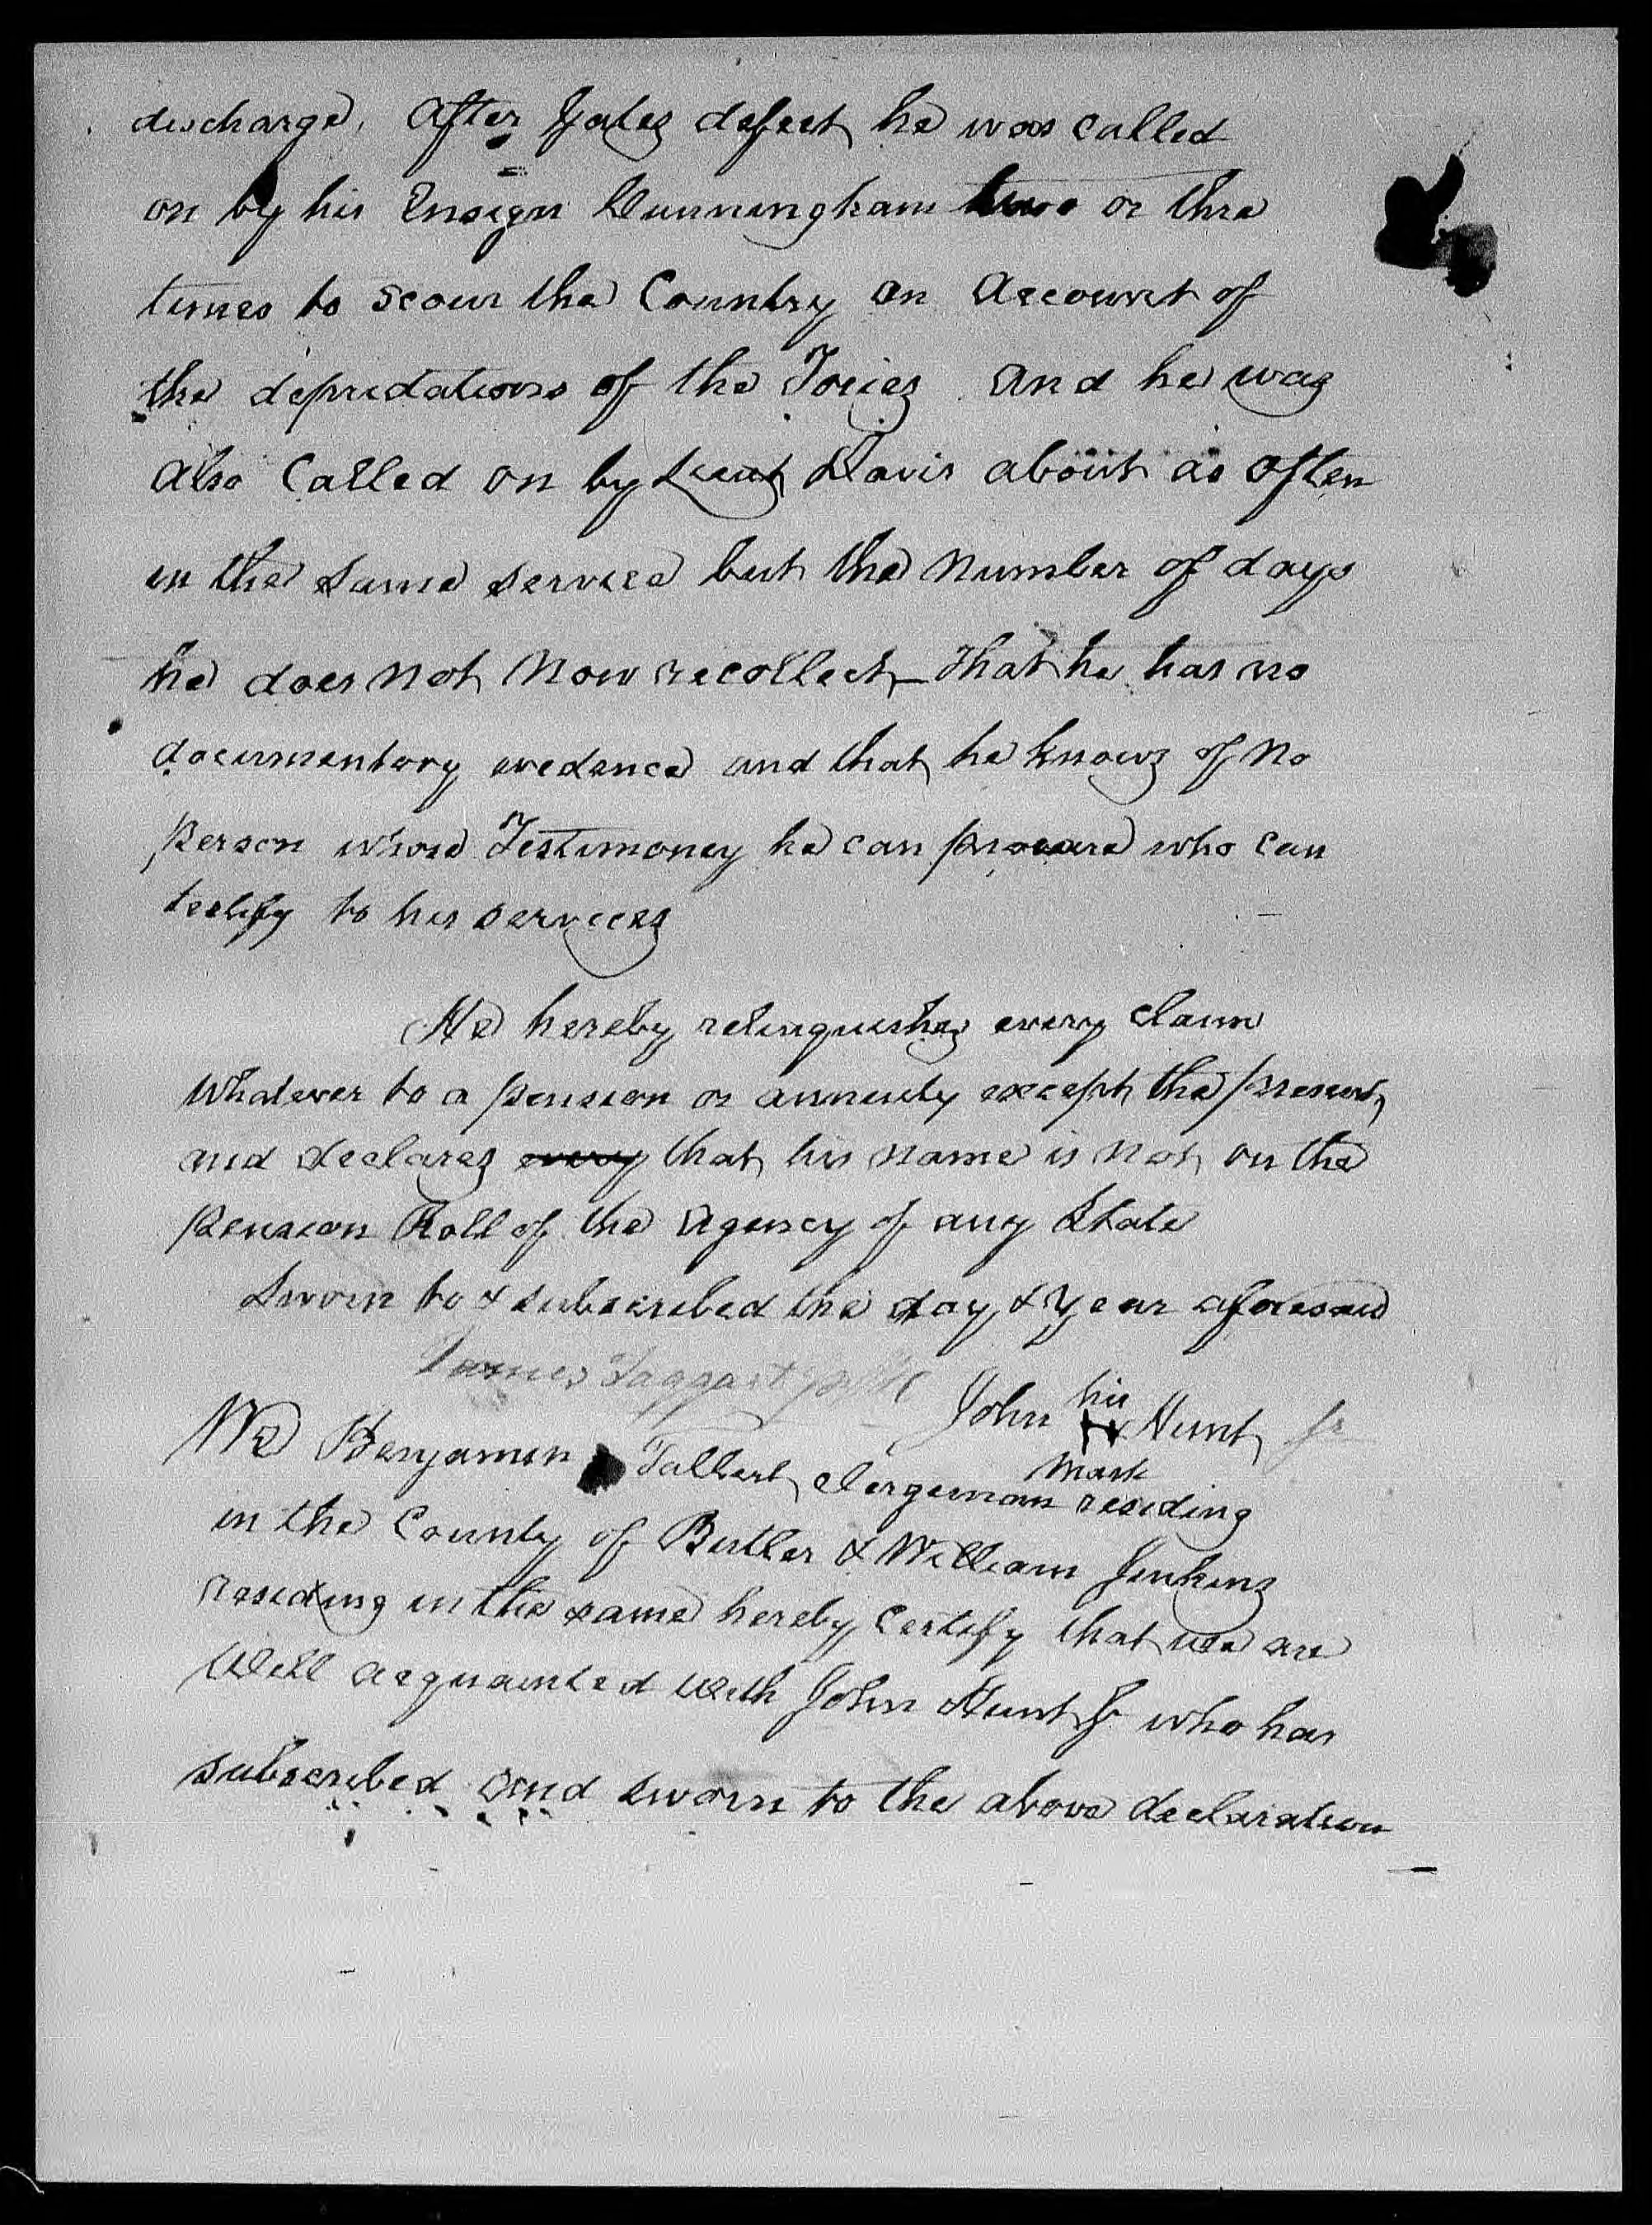 discharge, After Gates defeat he was called
on by his Ensign Cunningham two or thre
times to scour the Country on Account of
the depridations of the Tories and he was
also Called on by Lieut Davis about as often
in the same service but the Number of days
he does Not Now recollect – That he has no
documentory evedence and that he knows of No
Person whose Testimoney he can procure who can
testify to his services
He hereby relinquishes every Claim
Whatever to a pension or annuity except the present
and declares every that his name is Not on the
Pension Roll of the Agency of any State
Sworn to & subscribed the day & Year aforesaid
James Taggart
John his Hunt Jr
mark
We Benjamin Talbert Clergeman residing
in the County of Butler & William Jenkins
residing in the same hereby Certify that we are
Well acquainted with John Hunt Jr who has
subscribed and sworn to the above declaration